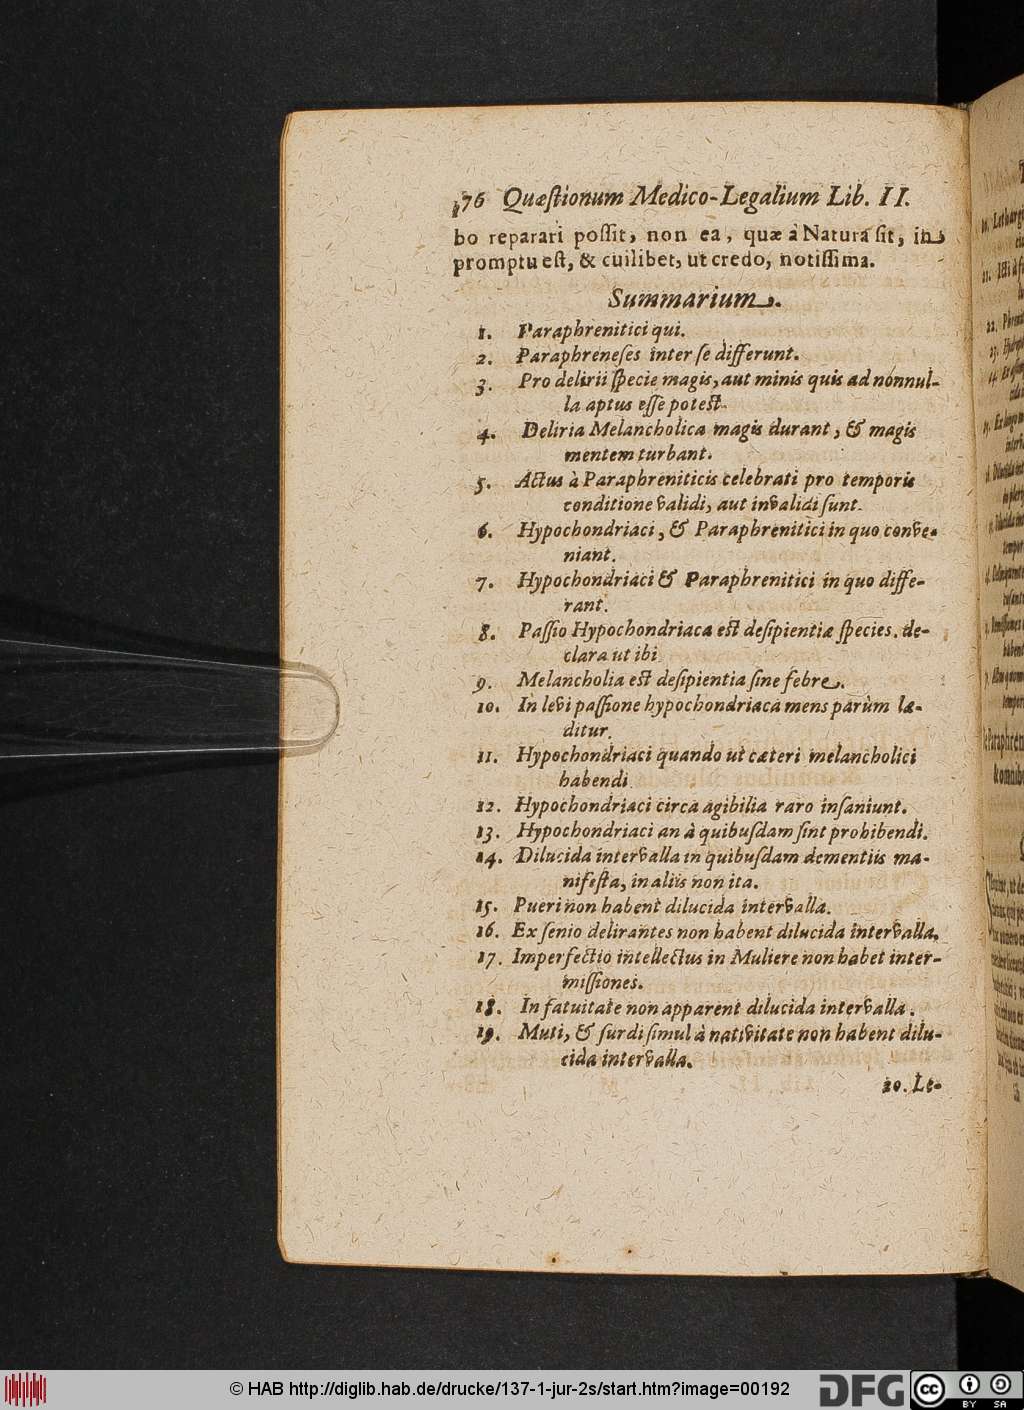 176 Quæſtionum Medico-Legalium Lib. II.
bo reparari poſſit, non ea, quæ à Natura ſit, in
promptu eſt, & cuilibet, ut credo, notiſſima.
Summarium.
1. Paraphrenitici qui.
2. Paraphreneſes inter ſe differunt.
3. Pro delirii ſpecie magis, aut minis quis ad nonnul-
la aptus eſſe poteſt.
4. Deliria Melancholica magis durant, & magis
mentem turbant.
5. Actus à Paraphreniticis celebrati pro temporis
conditione validi, aut invalidi ſunt.
6. Hypochondriaci, & Paraphrenitici in quo conve-
niant.
7. Hypochondriaci & Paraphrenitici in quo diffe-
rant.
8. Paſſio Hypochondriaca eſt deſipientiæ ſpecies. de-
clara ut ibi
9. Melancholia eſt deſipientia ſine febre.
10. In levi paſſione hypochondriaca mens parùm læ-
ditur.
11. Hypochondriaci quando ut cæteri melancholici
habendi
12. Hypochondriaci circa agibilia raro inſaniunt.
13. Hypochondriaci an à quibuſdam ſint prohibendi.
14. Dilucida intervalla in quibuſdam dementiis ma-
nifeſta, in aliis non ita.
15. Pueri non habent dilucida intervalla.
16. Ex ſenio delirantes non habent dilucida intervalla.
17. Imperfectio intellectus in Muliere non habet inter-
miſſiones.
18. In fatuitate non apparent dilucida intervalla.
19. Muti, & ſurdi ſimul à nativitate non habent dilu-
cida intervalla.
20. Le-
© HAB http://diglib.hab.de/drucke/137-1-jur-2s/start.htm?image=00192
DFG
cc
BY SA